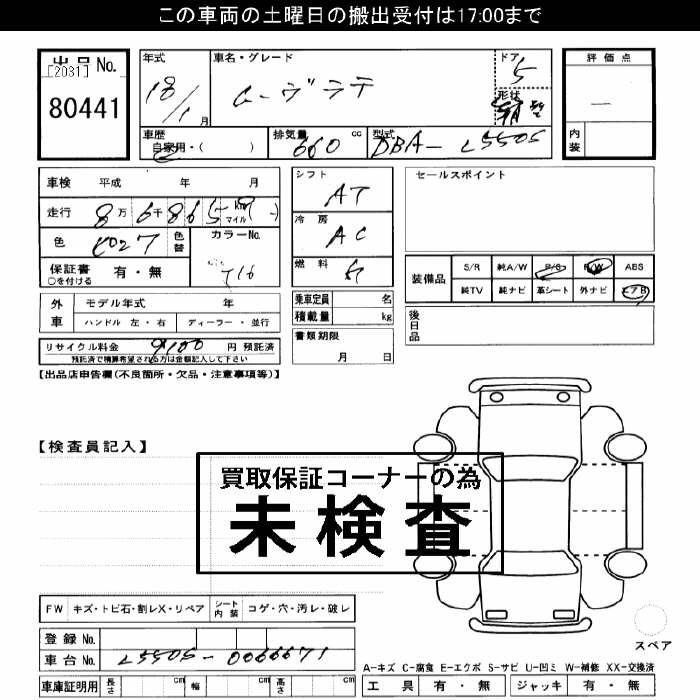 この車両の土曜日の搬出受付は17:00まで
出品No. [2031]
80441
年式 18/1月
車名・グレード ムーヴラテ
ドア 5
形状
評価点 —
内装
車歴 自家用・( )
排気量 660 cc
型式 DBA-L550S
車検 平成 年 月
走行 8万6千865 km マイル
色 色替
カラーNo. T16
保証書 ○を付ける 有・無
シフト AT
冷房 AC
燃料
セールスポイント
装備品 S/R 純A/W P/S P/W ABS
純TV 純ナビ 革シート 外ナビ エアB
外車 モデル年式 年
ハンドル 左・右 ディーラー・並行
乗車定員 名
積載量 kg
後日品
リサイクル料金 9100 円 預託済
預託済で精算希望される方は金額記入して下さい
書類期限 月 日
【出品店申告欄(不良箇所・欠品・注意事項等)】
【検査員記入】
買取保証コーナーの為
未検査
FW キズ・トビ石・割レX・リペア シート内装 コゲ・穴・汚レ・破レ
登録No.
車台No. L550S-0066671
スペア
A-キズ C-腐食 E-エクボ S-サビ U-凹ミ W-補修 XX-交換済
車庫証明用 長さ cm 幅 cm 高さ cm
工具 有・無 ジャッキ 有・無